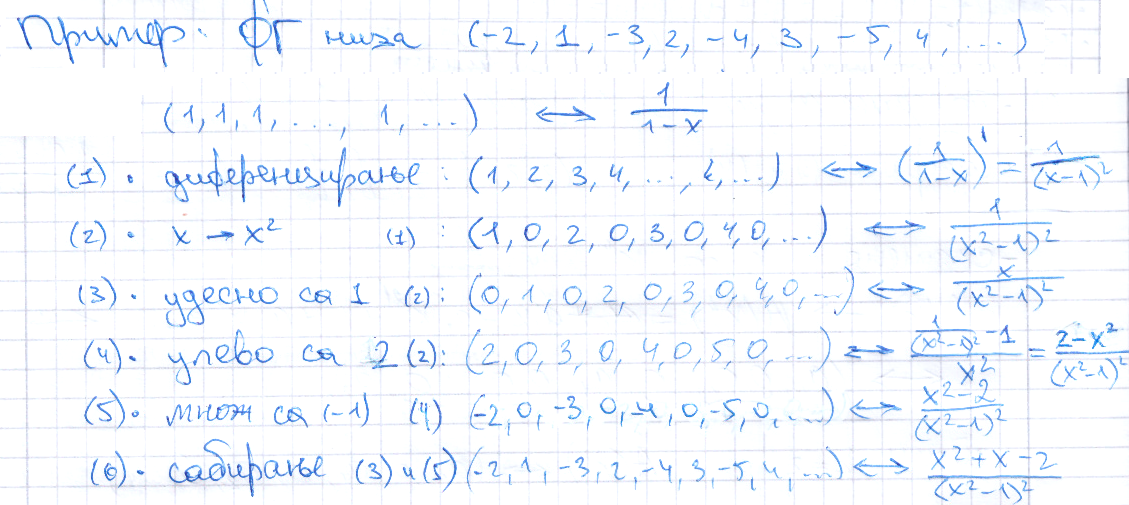 Пример: ФГ низа (-2, 1, -3, 2, -4, 3, -5, 4, ...)
(1, 1, 1, ..., 1, ...) ⟷ 1/(1-x)
(1) • диференцирање: (1, 2, 3, 4, ..., k, ...) ⟷ (1/(1-x))' = 1/(x-1)²
(2) • x → x² (1): (1, 0, 2, 0, 3, 0, 4, 0, ...) ⟷ 1/(x²-1)²
(3) • удесно са 1 (2): (0, 1, 0, 2, 0, 3, 0, 4, 0, ...) ⟷ x/(x²-1)²
(4) • улево са 2 (2): (2, 0, 3, 0, 4, 0, 5, 0, ...) ⟷ (1/(x²-1)² - 1)/x² = (2-x²)/(x²-1)²
(5) • множ са (-1) (4) (-2, 0, -3, 0, -4, 0, -5, 0, ...) ⟷ (x²-2)/(x²-1)²
(6) • сабирање (3) и (5) (-2, 1, -3, 2, -4, 3, -5, 4, ...) ⟷ (x²+x-2)/(x²-1)²